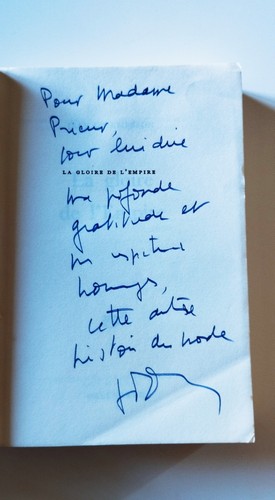 Pour Madame
Prieur,
pour lui dire
LA GLOIRE DE L'EMPIRE
ma profonde
gratitude et
mes respectueux
hommages,
cette
histoire du monde